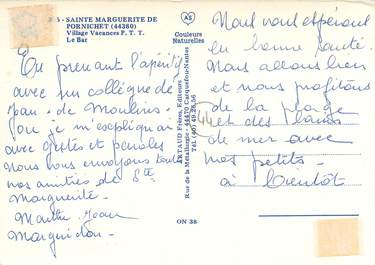 5 - SAINTE MARGUERITE DE
PORNICHET (44380)
Village Vacances P. T. T.
Le Bar
AS
Couleurs
Naturelles
En prenant l'apéritif
avec un collègue de
Jean - de Moulins.
où je m'expliquai
avec gestes et paroles
Nous vous envoyons toutes
nos amitiés de Ste
Marguerite.
Marthe Jean
ARTAUD Frères, Editeurs
Rue de la Métallurgie - 44470 Carquefou-Nantes
Tél. (40) 49.28.56
ON 38
Nous vous espérons
en bonne santé.
Nous allons bien
et nous profitons
de la plage
44 et des bains
de mer avec
nos petits.
à bientôt